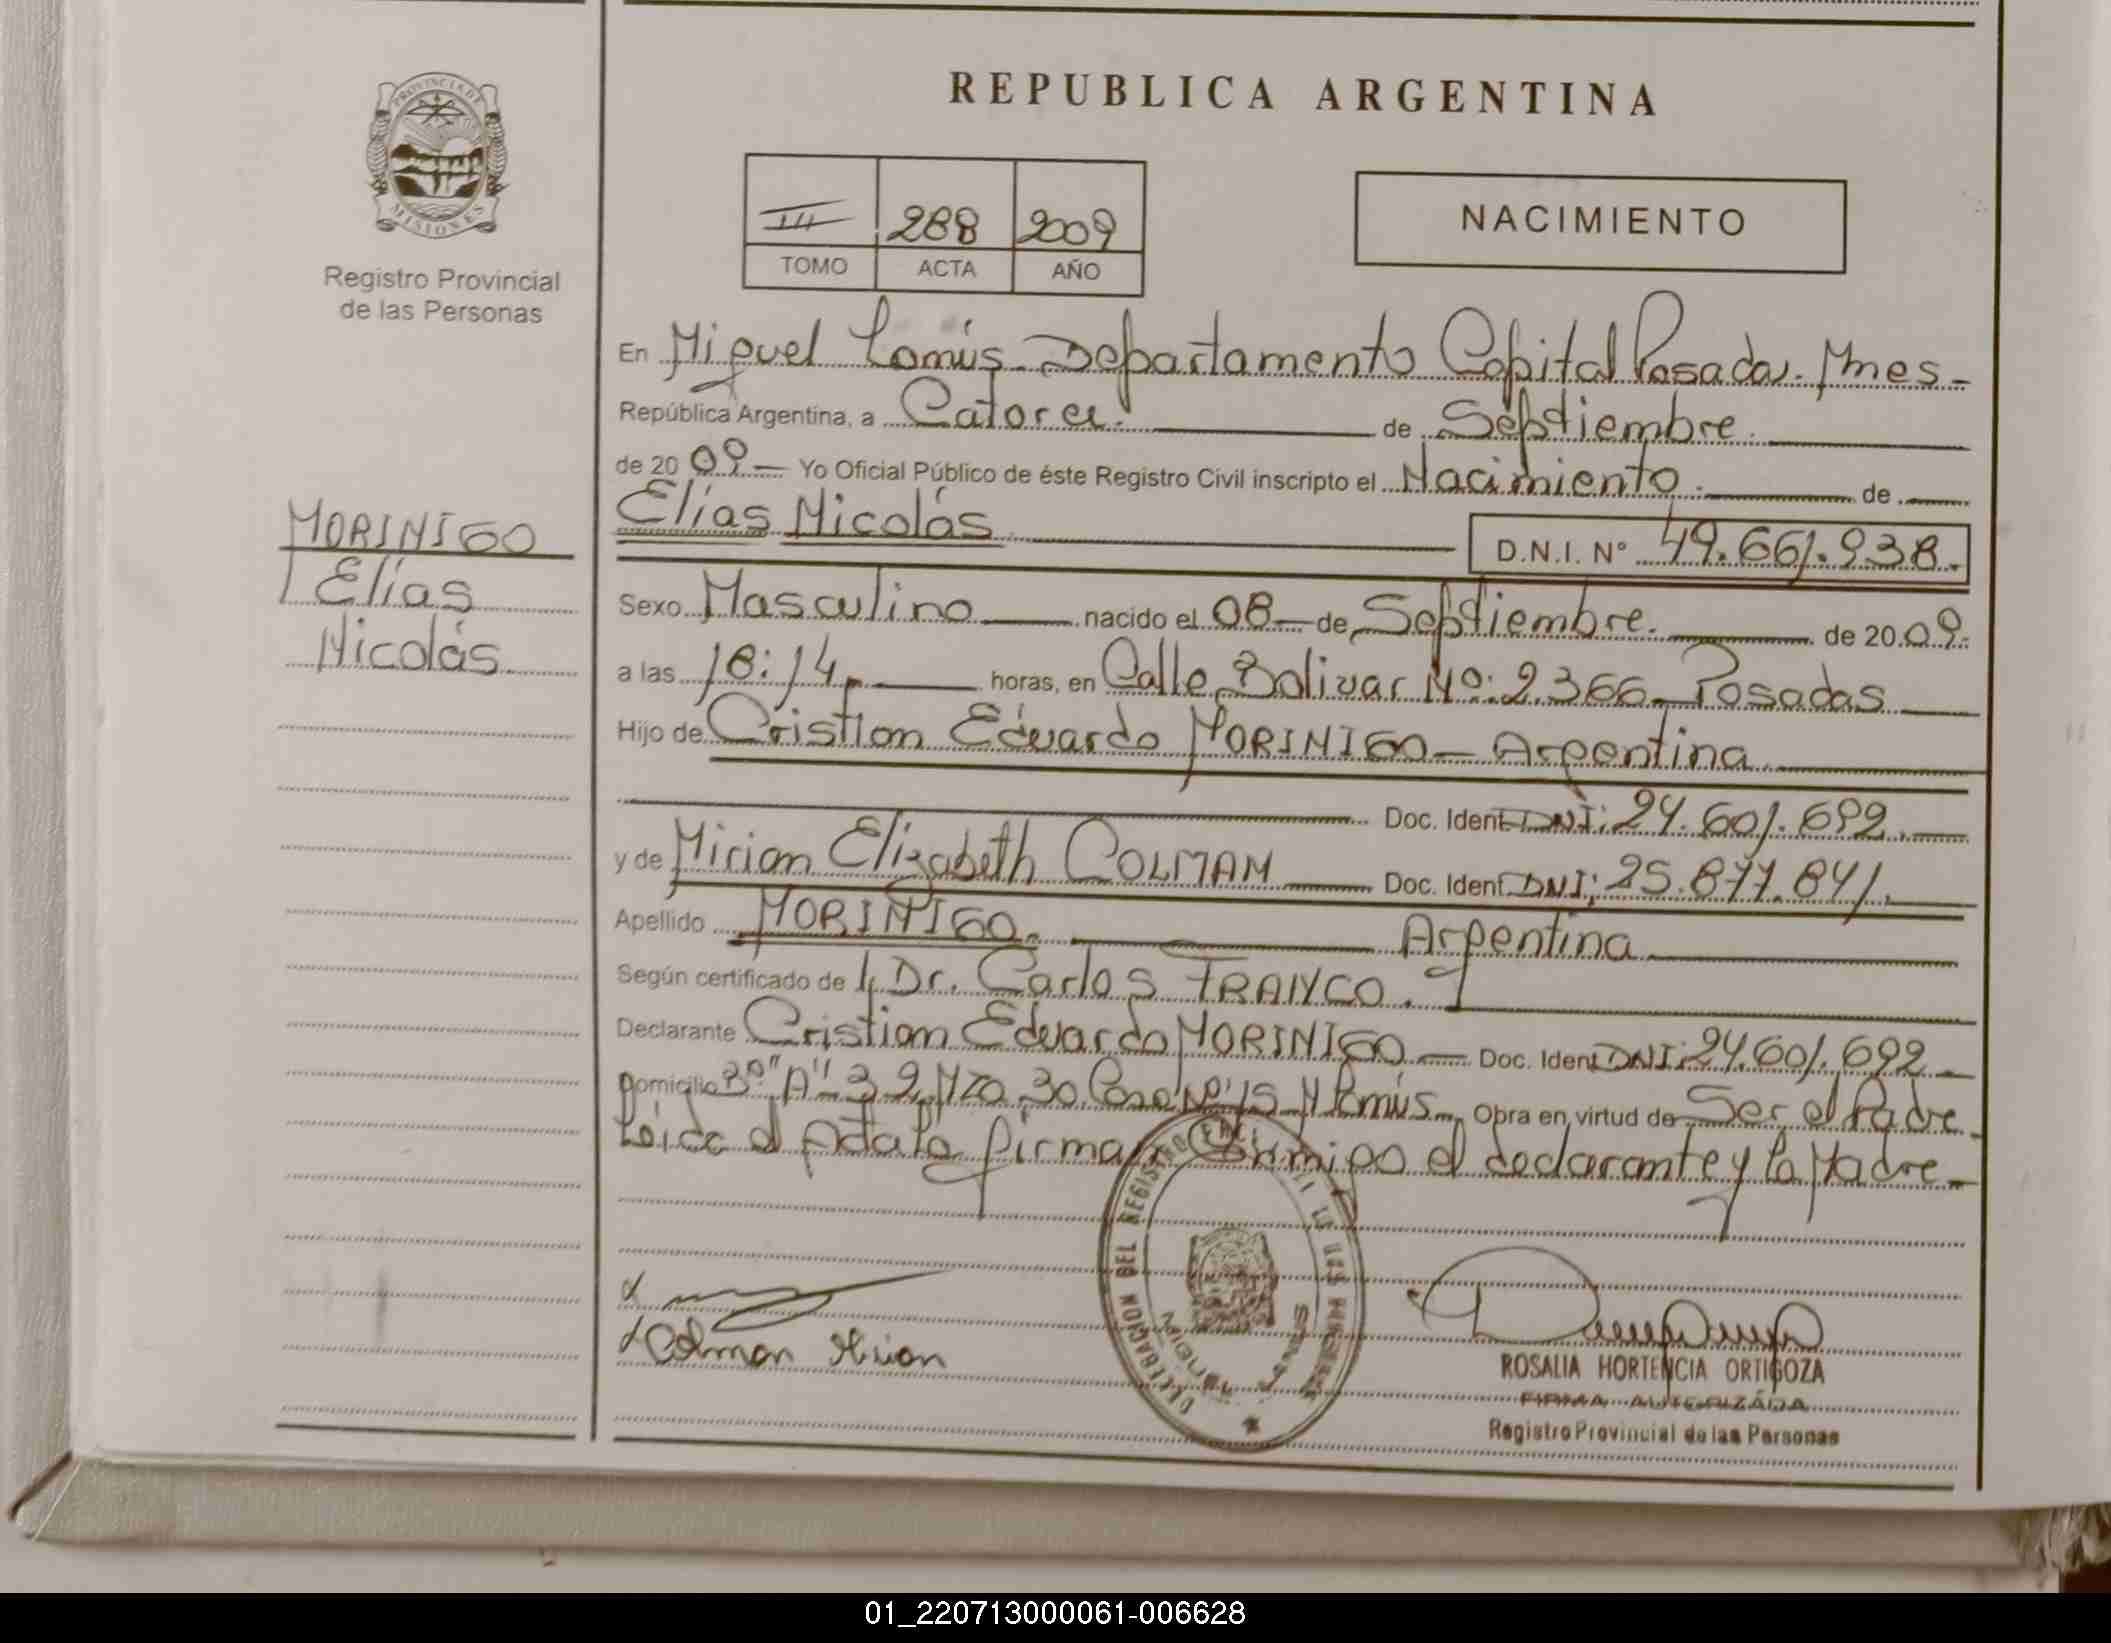 PROVINCIA DE
MISIONES
Registro Provincial
de las Personas
MORINIGO
Elías
Nicolás
REPUBLICA ARGENTINA
III 288 2009
TOMO ACTA AÑO
NACIMIENTO
En Miguel Lanús - Departamento Capital Posadas. Mnes -
República Argentina, a Catorce. de Septiembre.
de 2009 — Yo Oficial Público de éste Registro Civil inscripto el Nacimiento. de
Elías Nicolás D.N.I. N° 49.661.938.
Sexo Masculino nacido el 08 — de Septiembre. de 2009.
a las 18:14. horas, en Calle Bolivar Nº: 2366 - Posadas
Hijo de Cristian Eduardo MORINIGO — Argentina
Doc. Ident. DNI: 24.601.692.
y de Mirian Elizabeth COLMAN Doc. Ident. DNI: 25.877.841.
Apellido MORINIGO. Argentina
Según certificado de Dr. Carlos FRANCO.
Declarante Cristian Eduardo MORINIGO — Doc. Ident. DNI: 24.601.692 —
Domicilio Bº "A" 32 Mza 30 Casa Nº 15 M Lanús - Obra en virtud de Ser el Padre -
Leida el Acta la firman Conmigo el declarante y la Madre -
Colman Mirian
DELEGACION DEL REGISTRO
ROSALIA HORTENCIA ORTIGOZA
FIRMA AUTORIZADA
Registro Provincial de las Personas
01_220713000061-006628